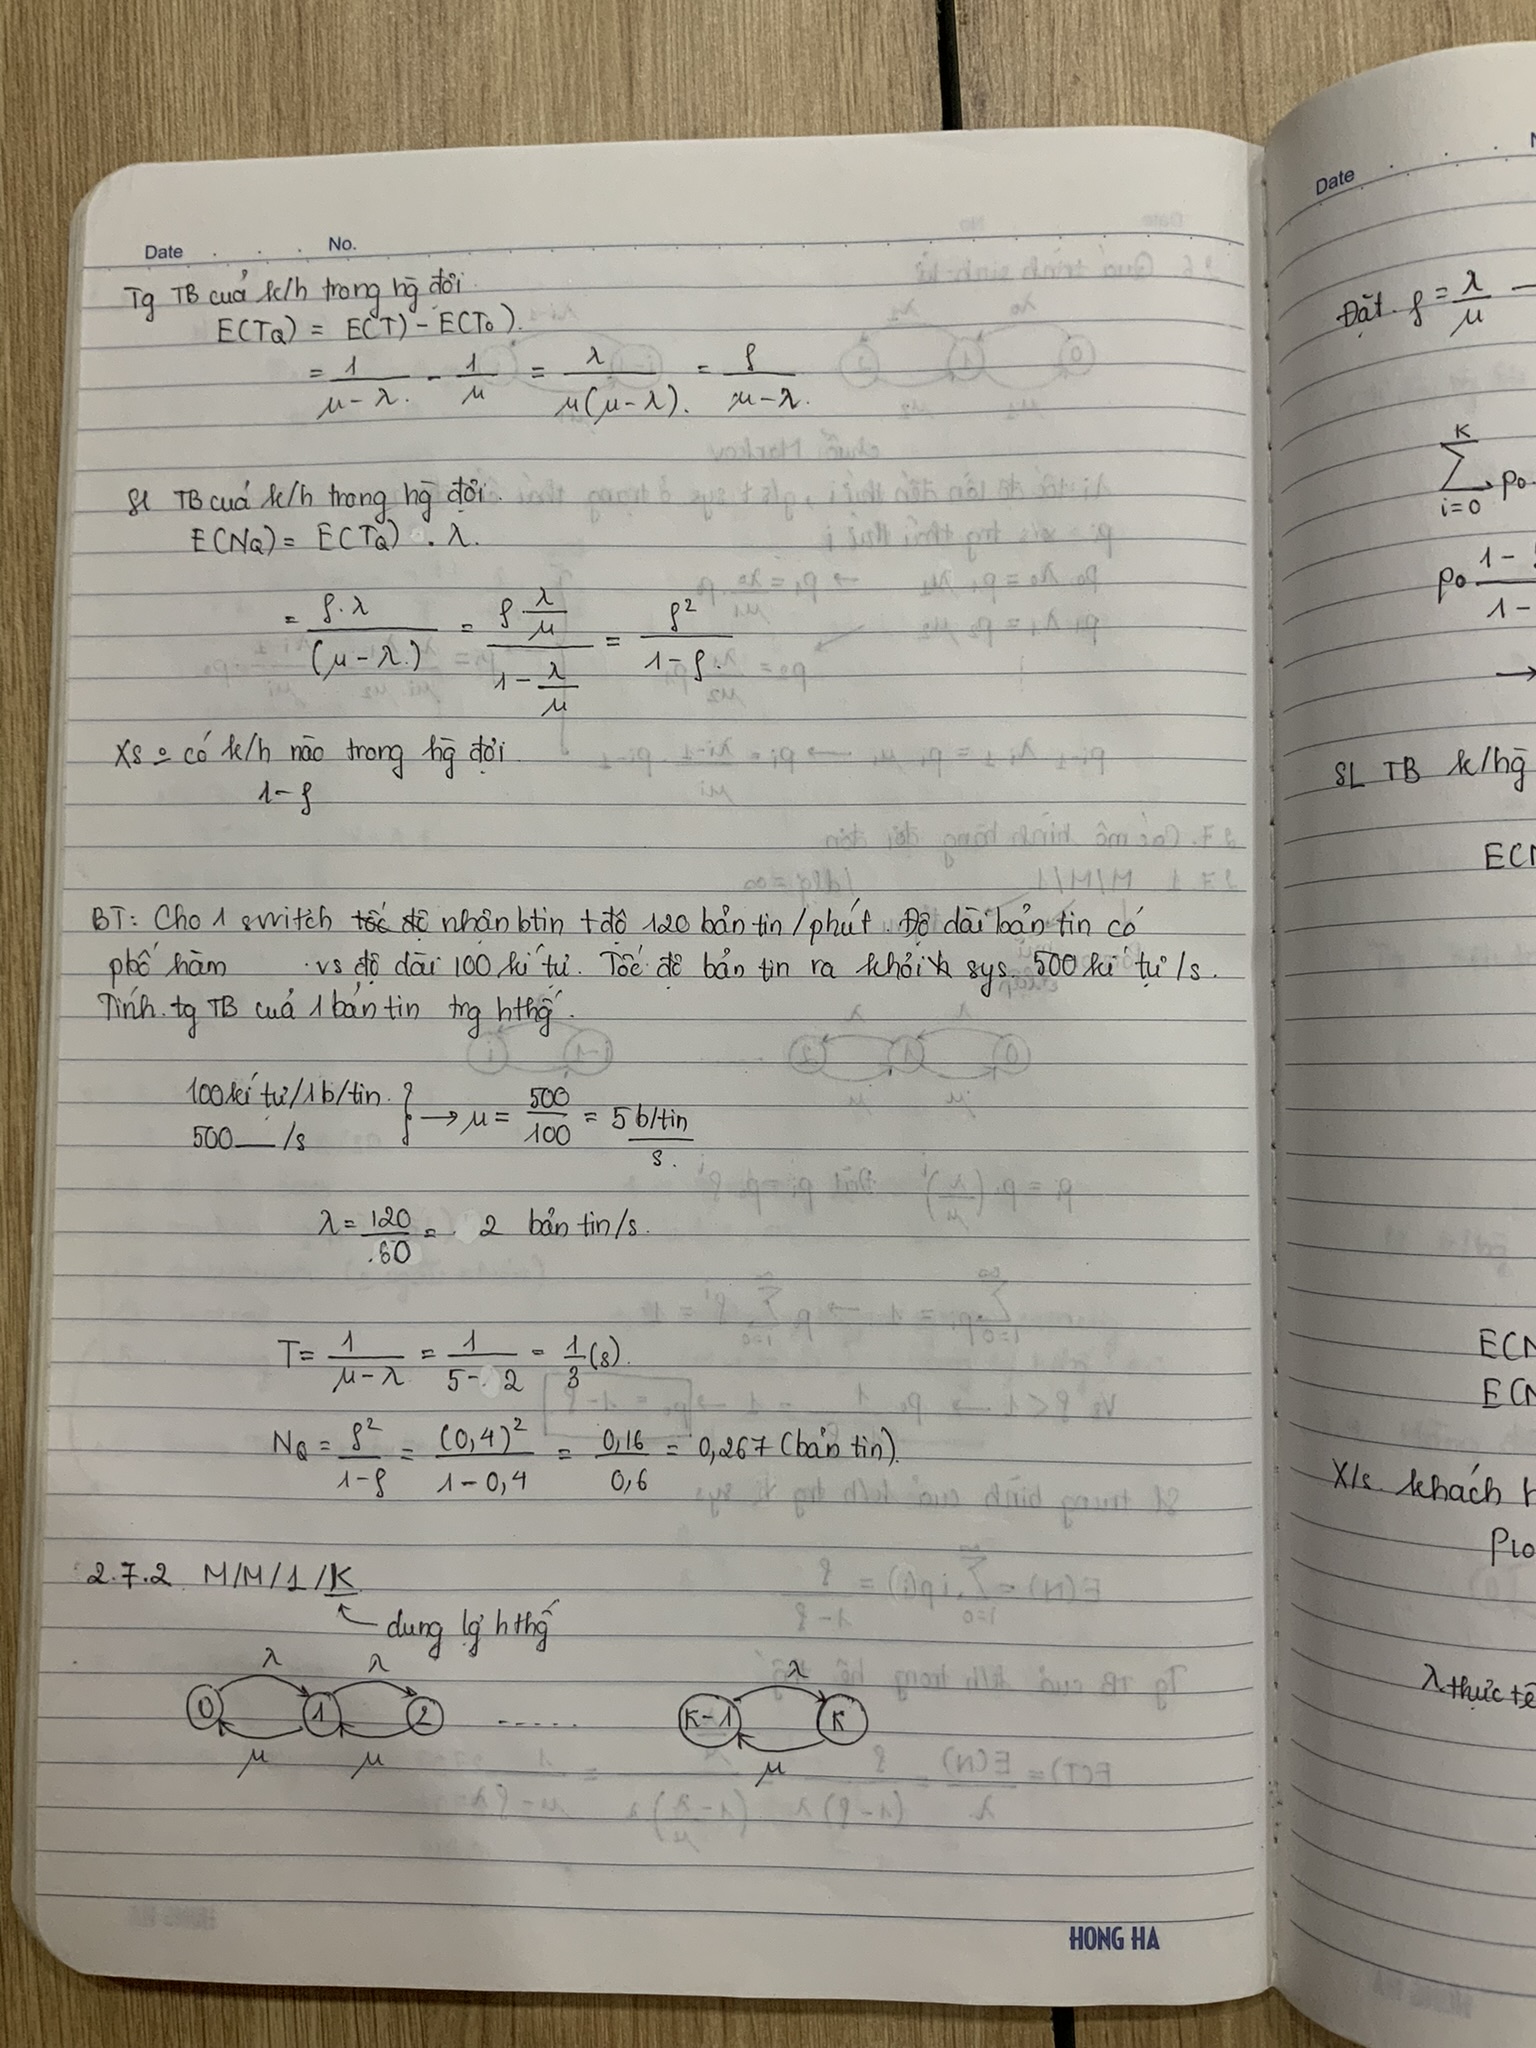 Date No.
Tg TB cuả k/h trong hg đợi.
E(TQ) = E(T) - E(T0).
= 1/(μ-λ) - 1/μ = λ/(μ(μ-λ)) = ρ/(μ-λ).
Sl TB cuả k/h trong hg đợi.
E(NQ) = E(TQ) . λ.
= ρ.λ/(μ-λ) = (ρ.λ/μ)/(1-λ/μ) = ρ²/(1-ρ).
Xs o có k/h nào trong hg đợi.
1-ρ
BT: Cho 1 switch nhận btin tđộ 120 bản tin/phút. Độ dài bản tin có
phố hàm vs độ dài 100 kí tự. Tốc độ bản tin ra khỏi sys 500 kí tự/s.
Tính tg TB cuả 1 bản tin trg hthg.
100 kí tự/1b/tin.
500 — /s } → μ = 500/100 = 5 b/tin/s.
λ = 120/60 = 2 bản tin/s.
T = 1/(μ-λ) = 1/(5-2) = 1/3 (s).
NQ = ρ²/(1-ρ) = (0,4)²/(1-0,4) = 0,16/0,6 = 0,267 (bản tin).
2.7.2 M/M/1/K
dung lg hthg
λ λ λ
0 1 2 ..... K-1 K
μ μ μ
HONG HA
Date
Đặt ρ = λ/μ —
K
∑ p0
i=0
p0 1-
1-
→
SL TB k/hg
E(N
E(N
E(N
X/s khách h
λ thực tế